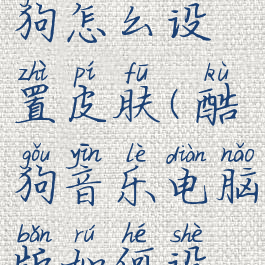 狗怎么设
zhì pí fū kù
置皮肤(酷
gǒu yīn lè diàn nǎo
狗音乐电脑
bǎn rú hé shè
版如何设